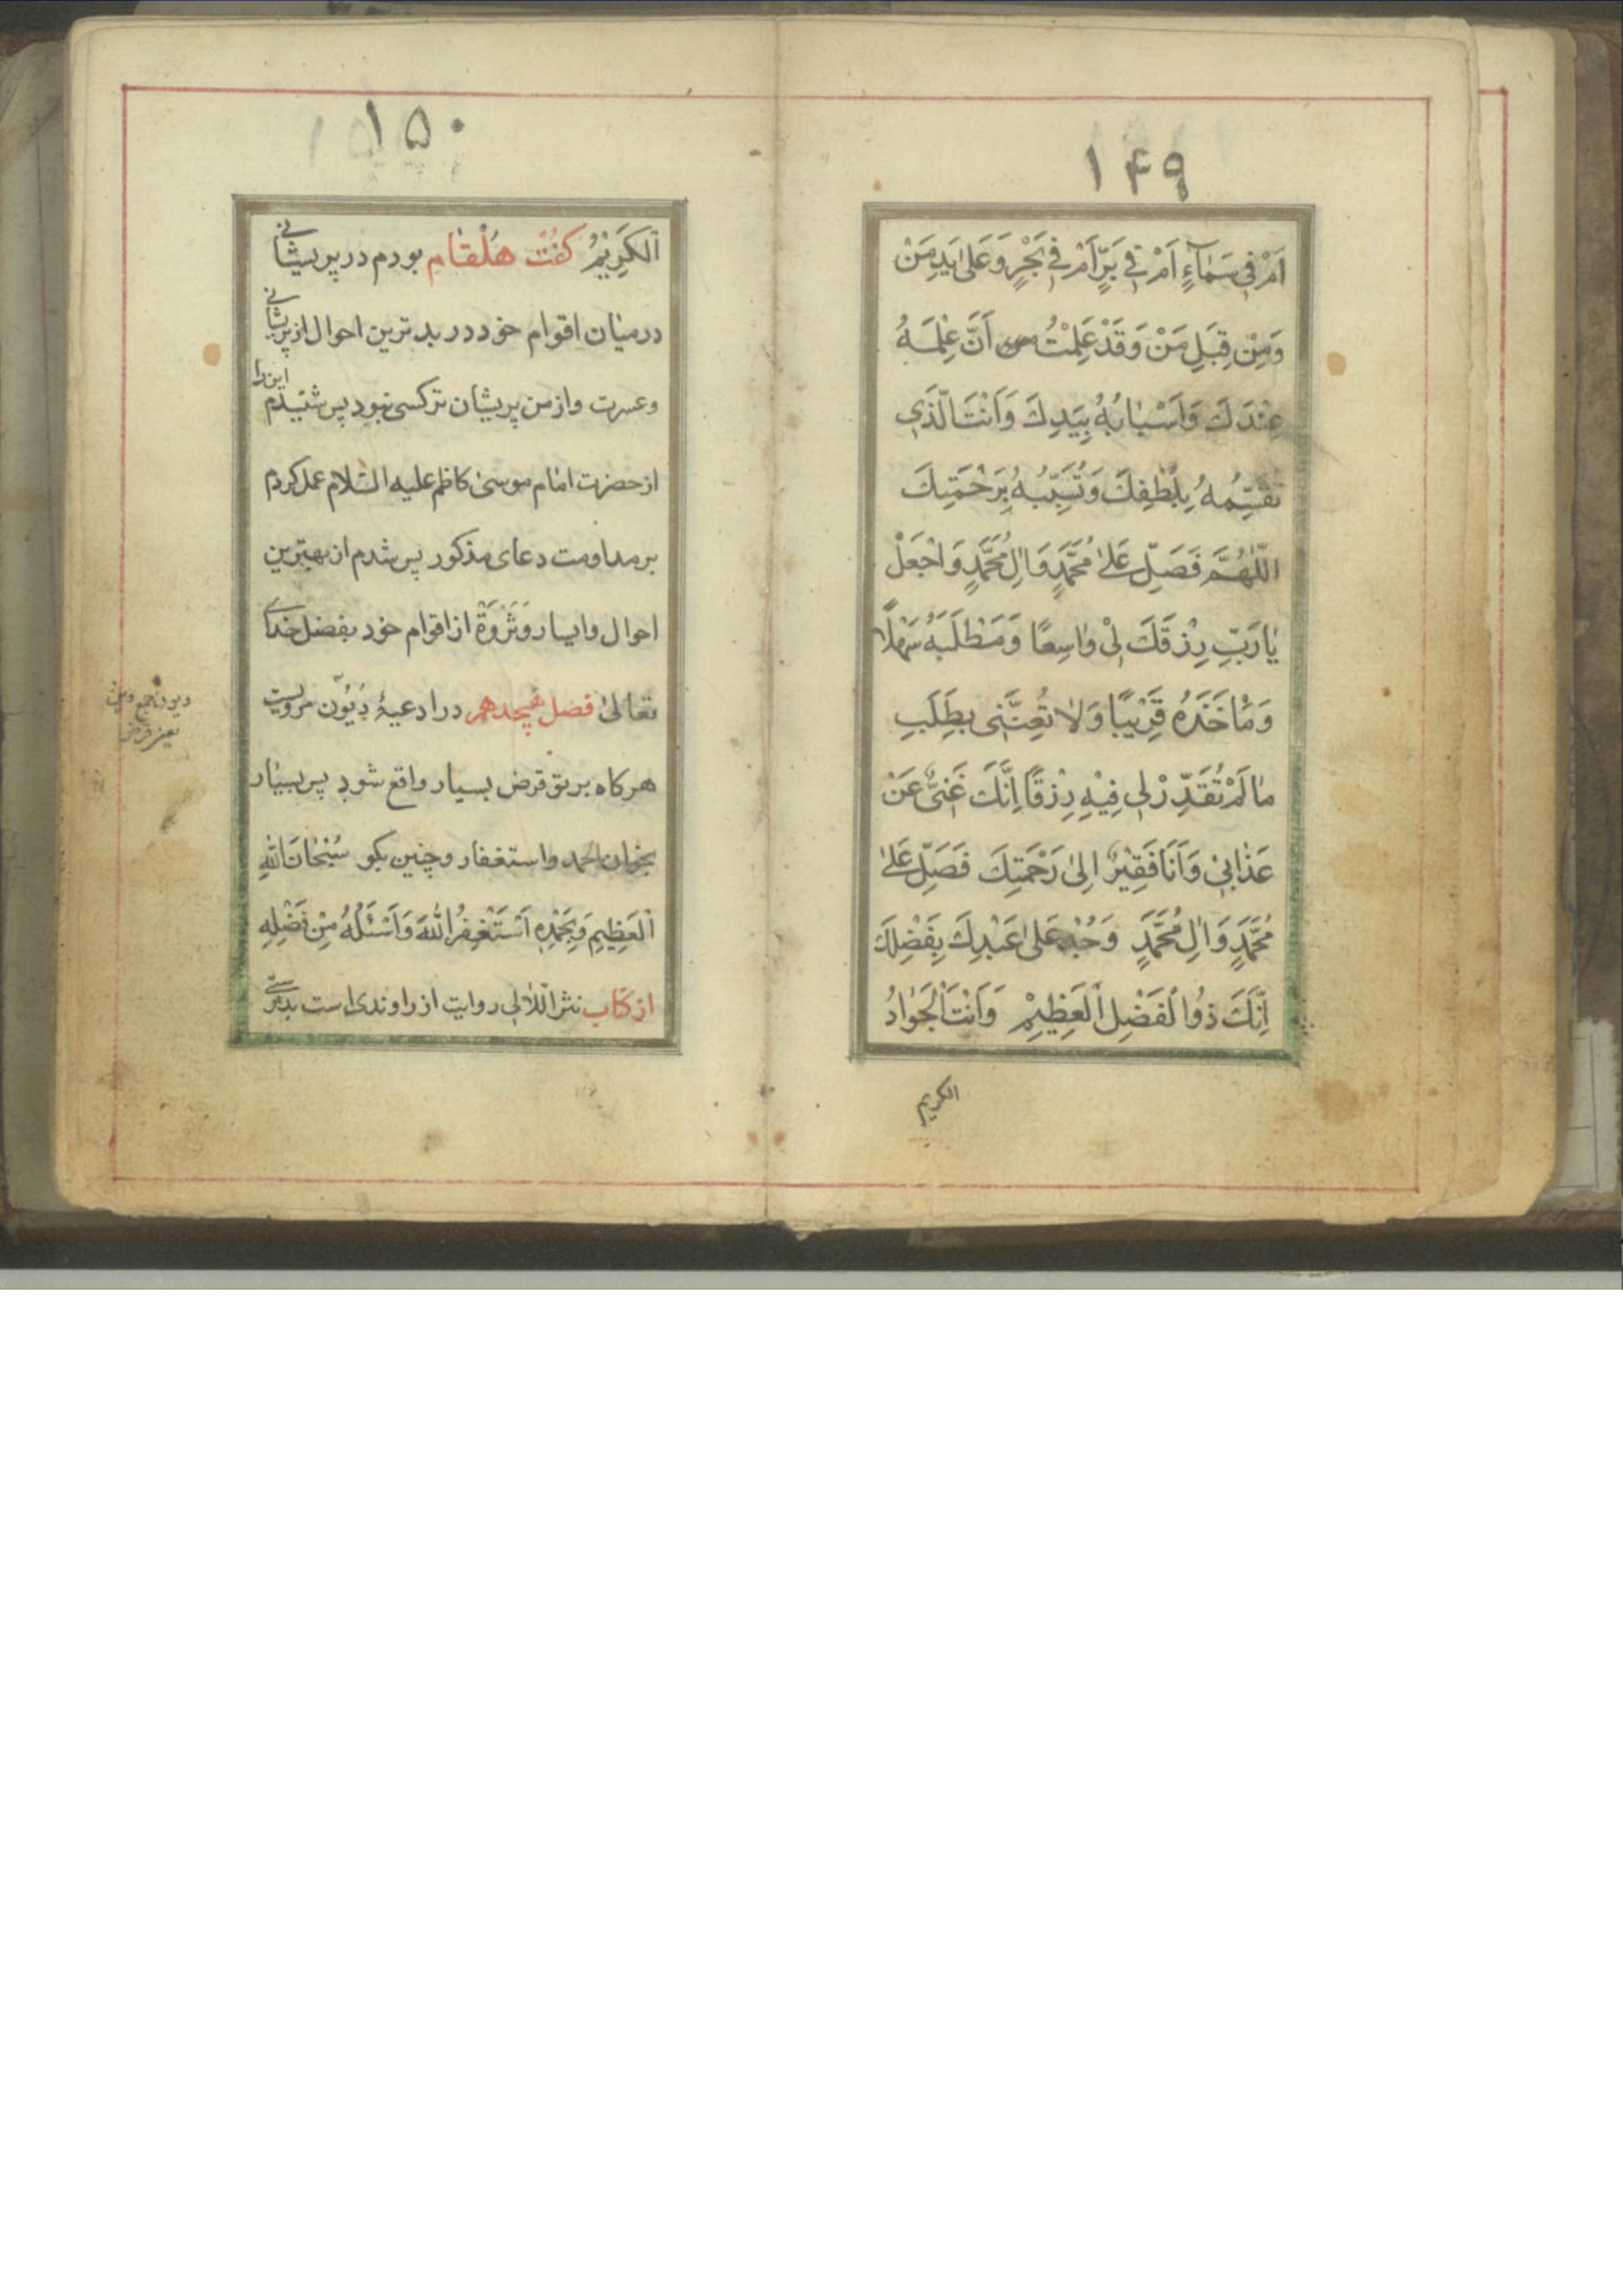 ١۴٩
اَمْ فِی سَمٰآءٍ اَمْ فِی بَرٍّ اَمْ فِی بَحْرٍ وَعَلیٰ یَدِ مَنْ
وَمِنْ قِبَلِ مَنْ وَقَدْ عَلِمْتُ اَنَّ عِلْمَهُ
عِنْدَكَ وَاَسْبٰابُهُ بِیَدِكَ وَاَنْتَ الَّذی
تَقْسِمُهُ بِلُطْفِكَ وَتُسَبِّبُهُ بِرَحْمَتِكَ
اَللّٰهُمَّ فَصَلِّ عَلیٰ مُحَمَّدٍ وَاٰلِ مُحَمَّدٍ وَاجْعَلْ
یٰا رَبِّ رِزْقَكَ لِیْ وٰاسِعًا وَمَطْلَبَهُ سَهْلًا
وَمَاْخَذَهُ قَرِیْبًا وَلٰا تُعَنِّنِی بِطَلَبِ
مٰا لَمْ تُقَدِّرْ لِی فِیْهِ رِزْقًا اِنَّكَ غَنِیٌّ عَنْ
عَذٰابِیْ وَاَنَا فَقِیْرٌ اِلیٰ رَحْمَتِكَ فَصَلِّ عَلیٰ
مُحَمَّدٍ وَاٰلِ مُحَمَّدٍ وَجُدْ عَلیٰ عَبْدِكَ بِفَضْلِكَ
اِنَّكَ ذُوا لْفَضْلِ الْعَظِیْمِ وَاَنْتَ الْجَوٰادُ
الکریم
١۵٠
اَلْکَرِیْمُ کفت هَلْقٰام بودم در پریشانی
درمیان اقوام خود در بدترین احوال از پریشانی
وعسرت واز من پریشان ترکسی نبود پس شنیدم این را
از حضرت امٰام موسیٰ کاظم علیه السّلام عمل کردم
بر مداومت دعای مذکور پس شدم از بهترین
احوال وایسار وَثَرْوَة از اقوام خود بفضل خدای
تعٰالیٰ فصل هیجدهم در ادعیهٔ دُیُوْن مرویست
هرکاه بر تو قرض بسیار واقع شود پس بسیٰار
بخوان الحمد واستغفار وچنین بکو سُبْحٰانَ اللهِ
الْعَظِیمِ وَبِحَمْدِهِ اَسْتَغْفِرُ اللهَ وَاَسْئَلُهُ مِنْ فَضْلِهِ
از کتاب نثر اللّئالی روایت از راوندی است بدرستی
دیون جمع دین
یعنی قرض